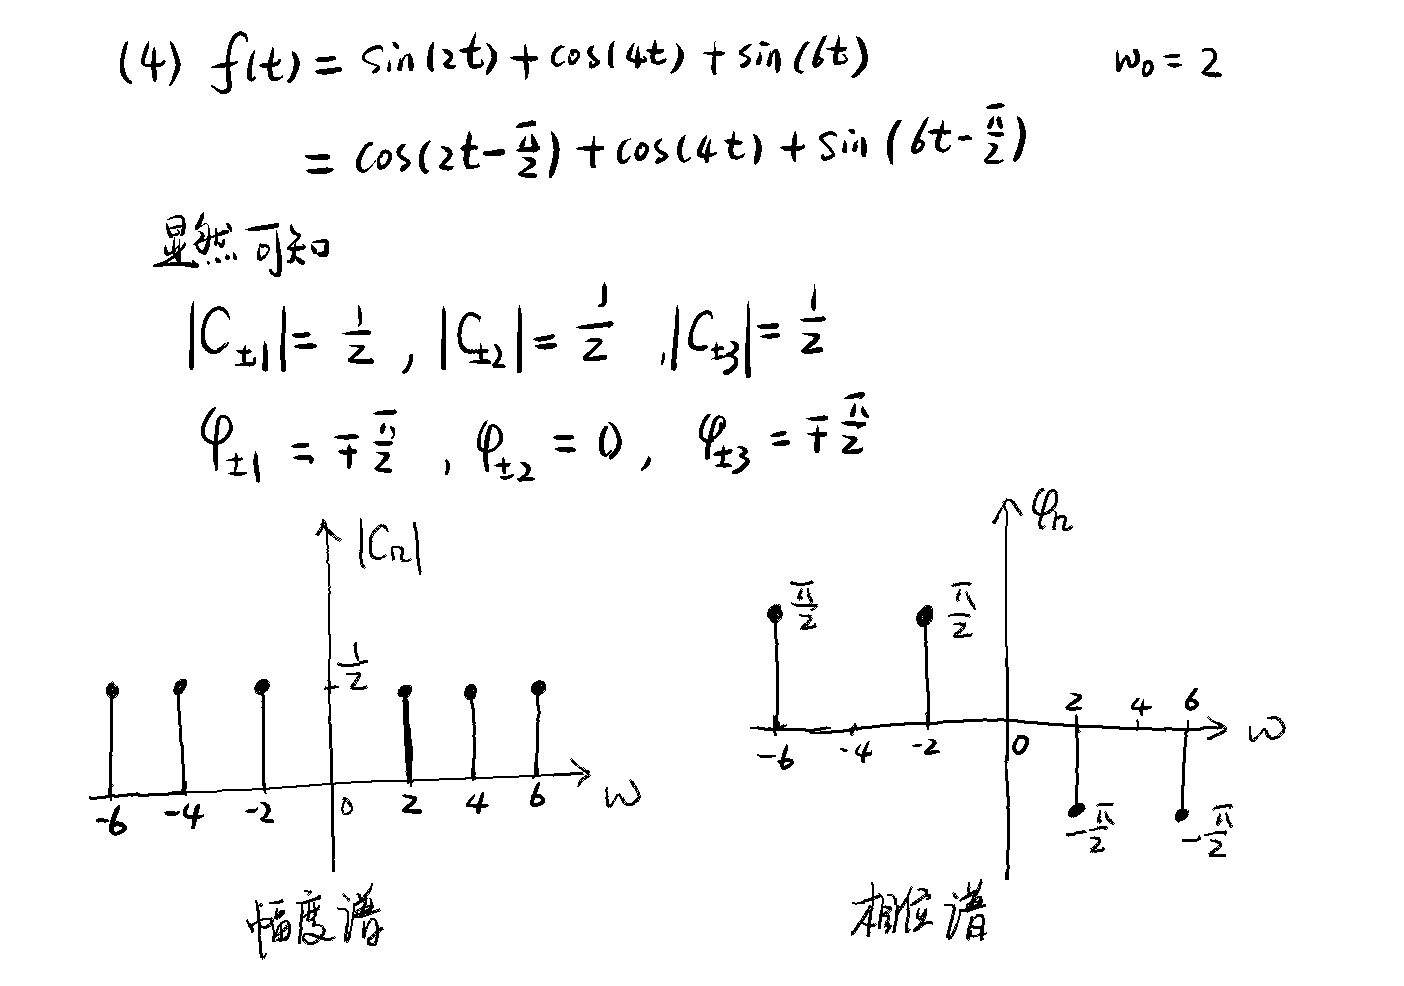 (4) f(t) = sin(2t) + cos(4t) + sin(6t) w₀ = 2
= cos(2t - π/2) + cos(4t) + sin(6t - π/2)
显然可知
|C±1| = 1/2 , |C±2| = 1/2 , |C±3| = 1/2
φ±1 = ∓ π/2 , φ±2 = 0 , φ±3 = ∓ π/2
|Cn|
1/2
-6 -4 -2 0 2 4 6 w
幅度谱
φn
π/2 π/2
2 4 6
-6 -4 -2 0 w
-π/2 -π/2
相位谱